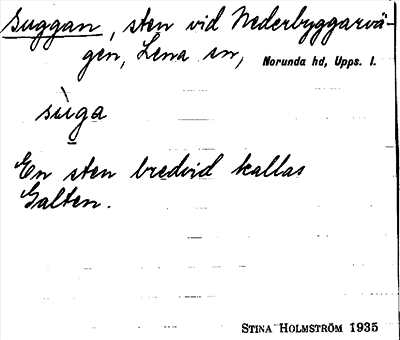 Suggan, sten vid Nederbyggarvä-
gen, Lena sn, Norunda hd, Upps. l.
sùga
En sten bredvid kallas
Galten.
STINA HOLMSTRÖM 1935